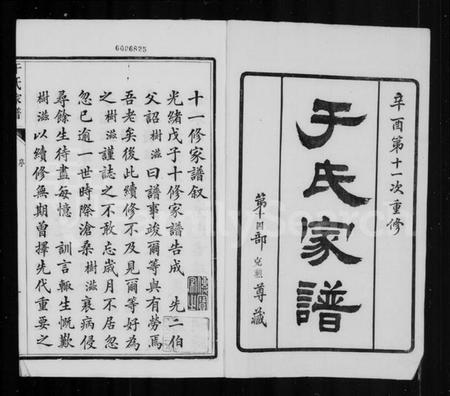 辛酉第十一次重修
于氏家譜
第十四部
尊藏
6026825
于氏家譜
序
十一修家譜叙
光緒戊子十修家譜告成 先二伯
父詔樹滋曰譜事竣爾等與有勞焉
吾老矣後此續修不及見爾等好為
之樹滋謹誌之不敢忘歲月不居忽
忽已逾一世時際滄桑樹滋衰病侵
尋餘生待盡每憶 訓言輒生慨歎
樹滋以續修無期曾擇先代重要之